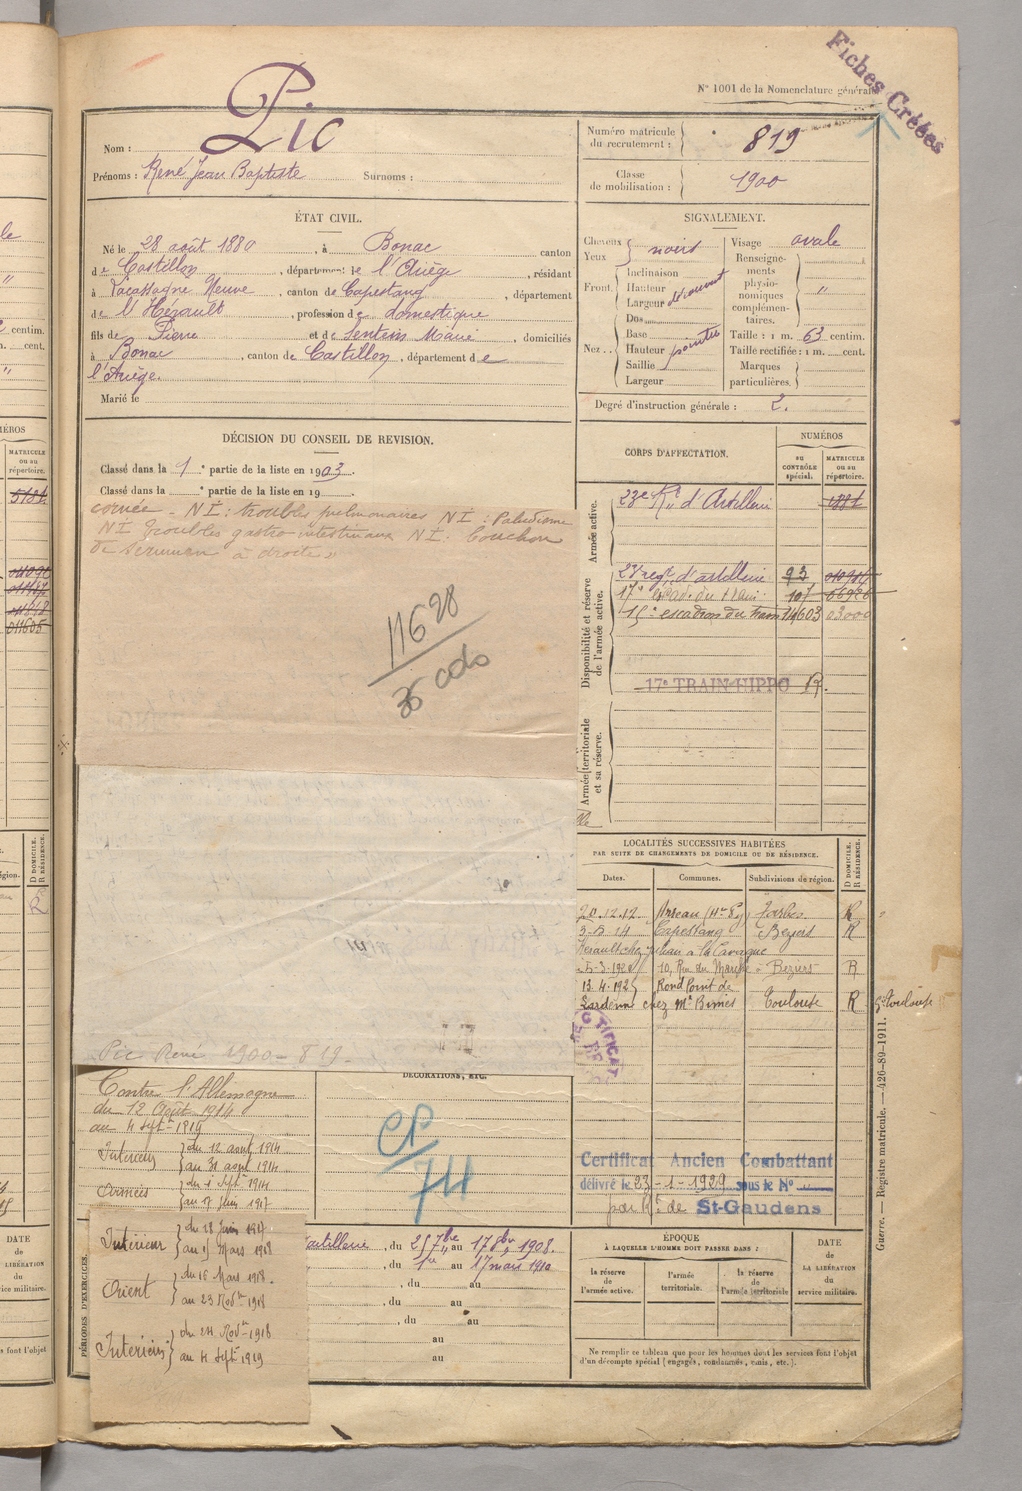 Fiches Créées
N° 1001 de la Nomenclature générale
Nom : Pic
Prénoms : René Jean Baptiste Surnoms :
Numéro matricule du recrutement : 819
Classe de mobilisation : 1900
ÉTAT CIVIL.
Né le 28 août 1880, à Bonac canton
de Castillon, département de l'Ariège, résidant
à Lacassagne Neuve, canton de Capestang, département
de l'Hérault, profession de domestique
fils de Pierre et de Sentein Marie, domiciliés
à Bonac, canton de Castillon, département de
l'Ariège.
Marié le
SIGNALEMENT.
Cheveux
Yeux } noirs
Front. { Inclinaison
Hauteur
Largeur découvert
Nez.. { Dos
Base
Hauteur pointu
Saillie
Largeur
Visage ovale
Renseignements physionomiques complémentaires. "
Taille : 1 m. 63 centim.
Taille rectifiée : 1 m. cent.
Marques particulières.
Degré d'instruction générale : 2.
DÉCISION DU CONSEIL DE REVISION.
Classé dans la 1e partie de la liste en 1903.
Classé dans la e partie de la liste en 19
cornée - NI : troubles pulmonaires NI : Paludisme
NI troubles gastro intestinaux NI. Bouchon
de cerumen à droite »
11628
35 cdo
Pic René 1900 - 819
CORPS D'AFFECTATION.
NUMÉROS
au CONTRÔLE spécial.
MATRICULE ou au répertoire.
Armée active.
23e Rt d'Artillerie
Disponibilité et réserve de l'armée active.
23 regt d'artillerie 93
17e escad. du train 107
15e escadron du train 14603 03000
17e TRAIN HIPPO R.
Armée territoriale et sa réserve.
LOCALITÉS SUCCESSIVES HABITÉES
PAR SUITE DE CHANGEMENTS DE DOMICILE OU DE RÉSIDENCE.
Dates. Communes. Subdivisions de région. D DOMICILE. R RÉSIDENCE.
20.12.12 Tarbes R
3-5-14 Capestang Béziers R
10, Rue du Marché à Béziers R
13.4.192 Rond Point de
Lardenne chez Mr Toulouse R
Toulouse
Contre l'Allemagne
du 12 Août 1914
au 4 Septre 1919
Intérieur } du 12 août 1914
au 31 août 1914
Armées } du 1 Septre 1914
au 17 Juin 1917
Intérieur } du 18 Juin 1917
au 15 Mars 1918
Orient } du 16 Mars 1918.
au 23 Novbre 1918
Intérieur } du 24 Novbre 1918
au 4 Septre 1919
DÉCORATIONS, ETC.
CP/74
Certificat Ancien Combattant
délivré le 23-1-1929 sous le N°
par Rt de St-Gaudens
PÉRIODES D'EXERCICES.
d'artillerie, du 25 7bre au 17 8bre 1908.
, du 1er au 17 mars 1910
, du au
, du au
au
au
ÉPOQUE
À LAQUELLE L'HOMME DOIT PASSER DANS :
la réserve de l'armée active.
l'armée territoriale.
la réserve de l'armée territoriale
DATE de LA LIBÉRATION du service militaire.
Ne remplir ce tableau que pour les hommes dont les services font l'objet
d'un décompte spécial (engagés, condamnés, omis, etc.).
Guerre. — Registre matricule. — 426-89-1911.